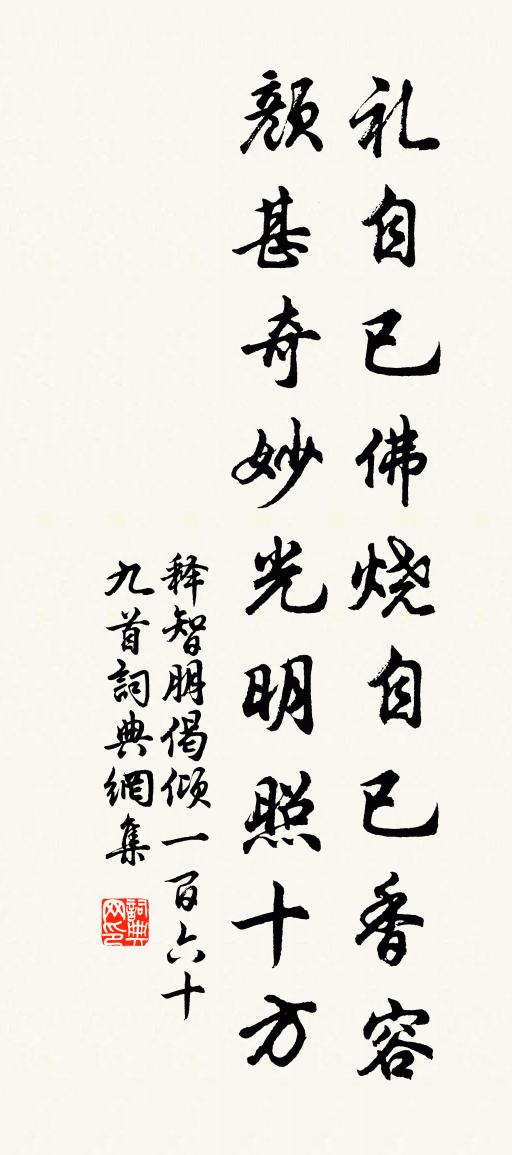 礼自已佛烧自已香容
颜甚奇妙光明照十方
释智朋偈倾一百六十
九首詞典網集
詞典网印